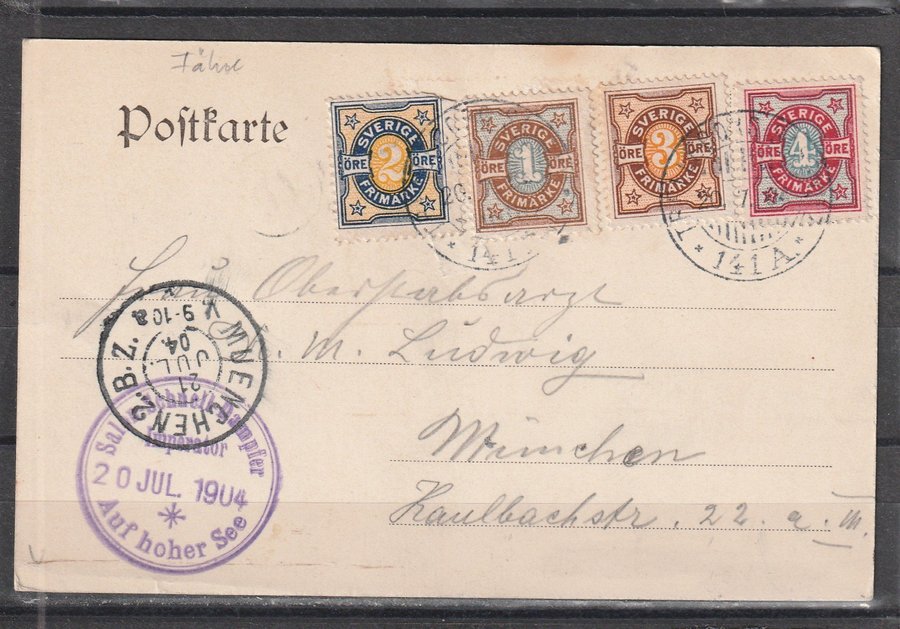 Fähre
Postkarte
SVERIGE
ÖRE 2 ÖRE
FRIMÄRKE
SVERIGE
ÖRE 1 ÖRE
FRIMÄRKE
SVERIGE
ÖRE 3 ÖRE
FRIMÄRKE
SVERIGE
ÖRE 4 ÖRE
FRIMÄRKE
20.
* 141 A *
* 141 A *
Frau Oberstabsarzt
M. Ludwig
München
Kaulbachstr. 22. a. m.
K MUENCHEN 2. B.Z.
21
JUL.
04.
9-10
Schnell-Dampfer
Imperator
20 JUL. 1904
*
Auf hoher See